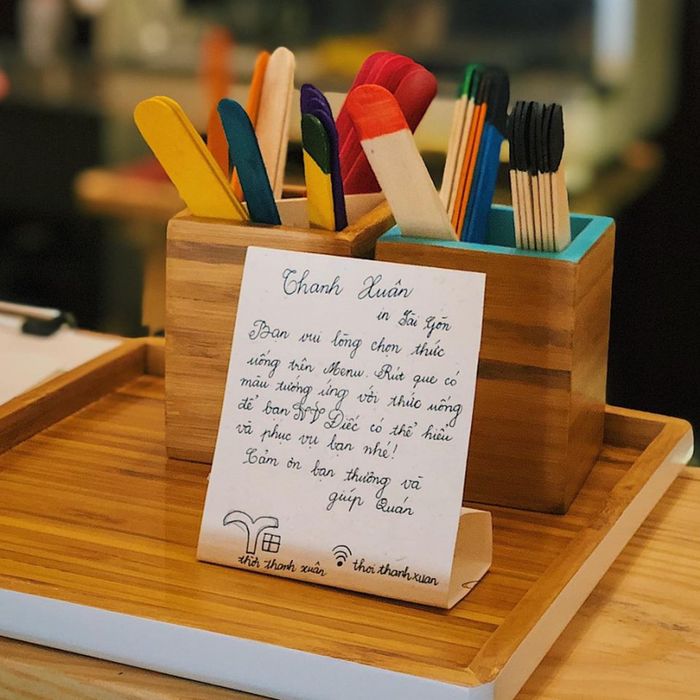 Thanh Xuân
in Sài Gòn
Bạn vui lòng chọn thức
uống trên Menu. Rút que có
màu tương ứng với thức uống
để bạn NV Điếc có thể hiểu
và phục vụ bạn nhé!
Cảm ơn bạn thương và
giúp Quán
thời thanh xuân
thoi thanh xuan